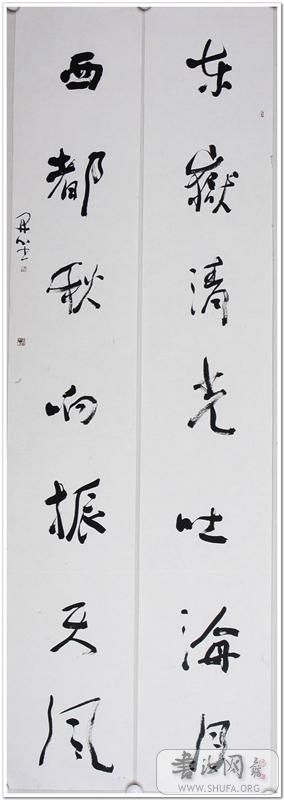 东嶽清光吐海月
西都秋响振天风
书法网
WWW.SHUFA.ORG